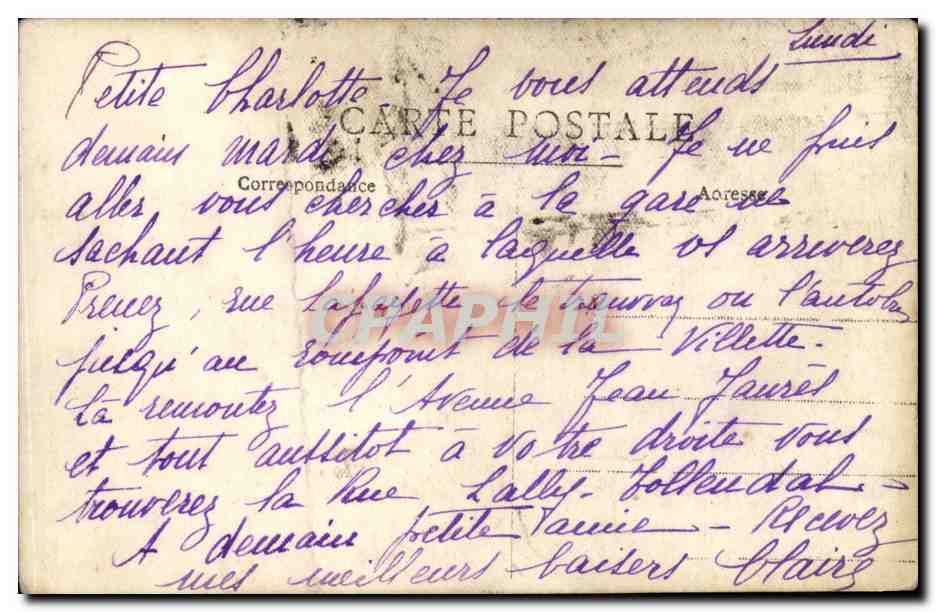 Lundi
Petite Charlotte. Je vous attends
CARTE POSTALE
demain mardi chez moi - Je ne puis
Correspondance Adresse
aller vous chercher à la gare ne
sachant l'heure à laquelle vs arriverez
Prenez, rue Lafayette le tramway ou l'autobus
CPAPHIL
jusqu'au rompoint de la Villette.
Là remontez l'Avenue Jean Jaurès
et tout aussitot à votre droite vous
trouverez la Rue Lally-Tollendal -
A demain petite amie - Recevez
mes meilleurs baisers Claire